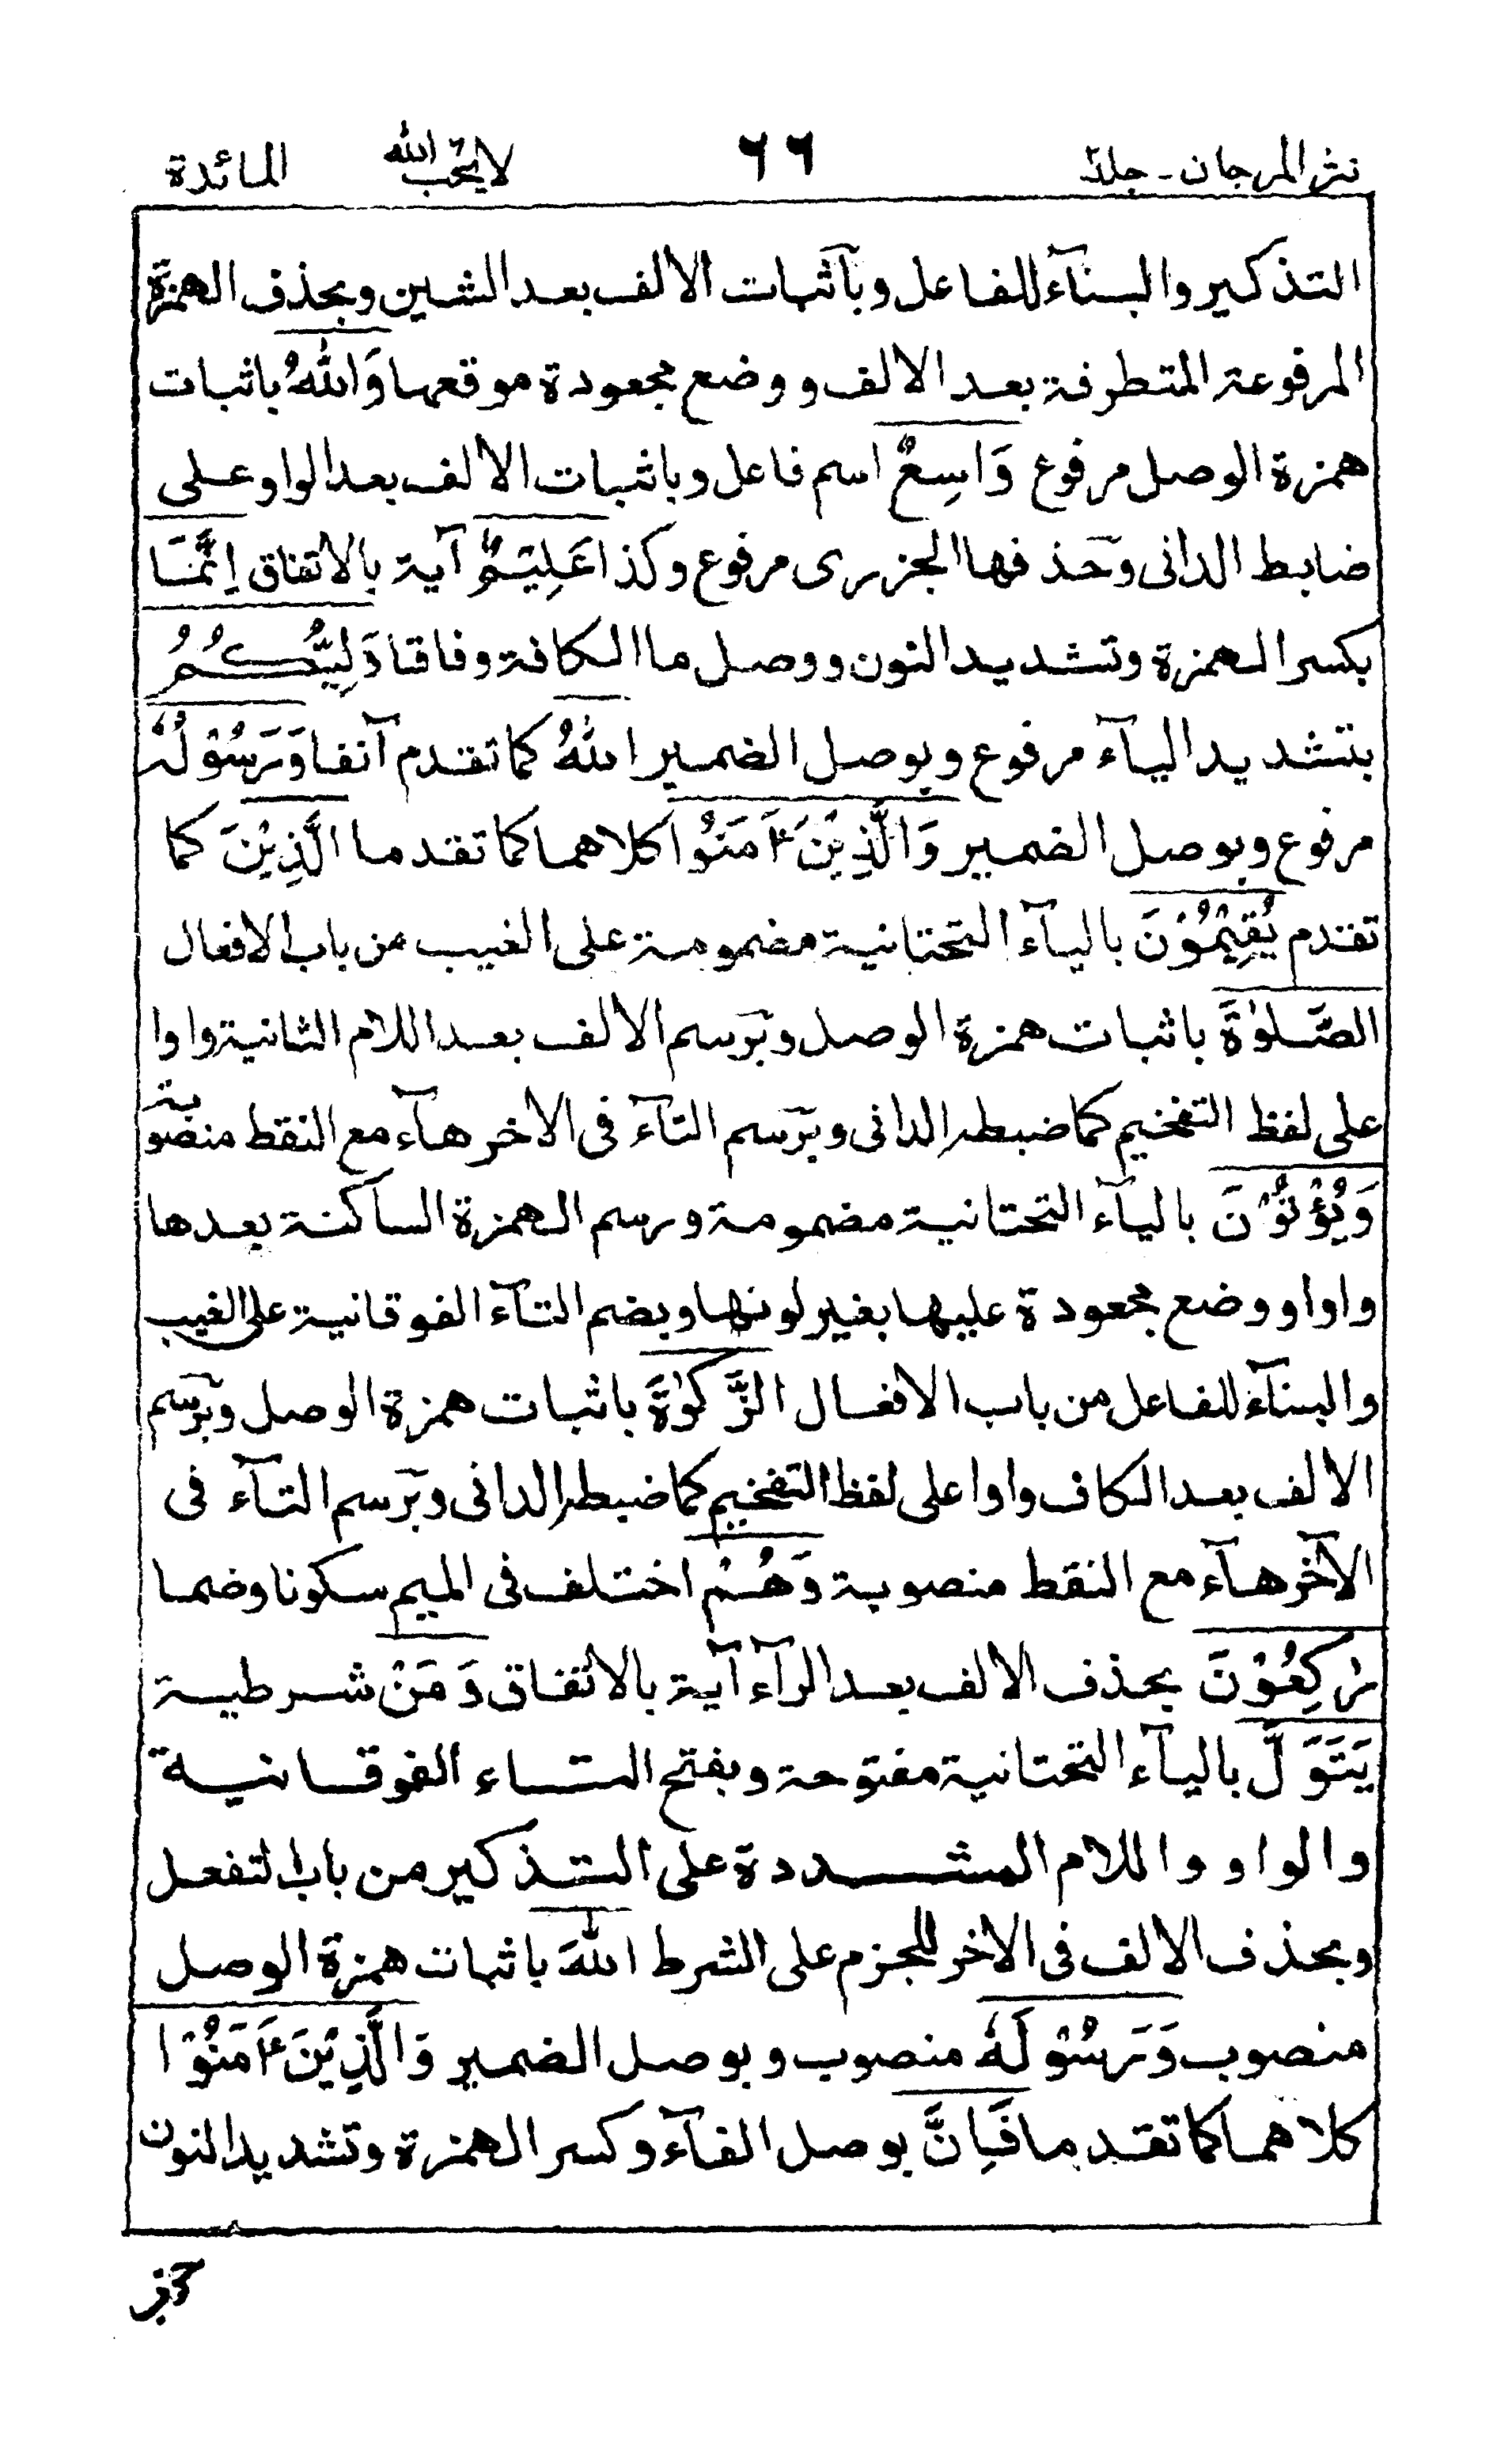 نثر المرجان - جلد ٢ ٦٦ لا يحب الله المائدة
التذكير والبنآء للفاعل وبآثبات الالف بعد الشين وبحذف الهمزة
المرفوعة المتطرفة بعد الالف ووضع مجعودة موقعها وَاللّٰهُ باثبات
همزة الوصل مرفوع وَاسِعٌ اسم فاعل وباثبات الالف بعد الواو على
ضابط الدانى وحذفها الجزرى مرفوع وكذا عَلِيْمٌ آية بالاتفاق اِنَّمَا
بكسر الهمزة وتشديد النون ووصل ما الكافة وفاقا وَلِيُّكُمُ
بتشديد اليآء مرفوع وبوصل الضمير اللّٰهُ كما تقدم آنفا وَرَسُوْلُهٗ
مرفوع وبوصل الضمير وَالَّذِيْنَ ءَامَنُوْا كلاهما كما تقدما الَّذِيْنَ كما
تقدم يُقِيْمُوْنَ باليآء التحتانية مضمومة على الغيب من باب الافعال
الصَّلوٰةَ باثبات همزة الوصل وبرسم الالف بعد اللام الثانية واوا
على لفظ التفخيم كما ضبطه الدانى وبرسم التآء فى الاخر هآء مع النقط منصوبة
وَيُؤْتُوْنَ باليآء التحتانية مضمومة ورسم الهمزة الساكنة بعدها
واوا ووضع مجعودة عليها بغير لونها وبضم التآء الفوقانية على الغيب
والبنآء للفاعل من باب الافعال الزَّكوٰةَ باثبات همزة الوصل وبرسم
الالف بعد الكاف واوا على لفظ التفخيم كما ضبطه الدانى وبرسم التآء فى
الآخر هآء مع النقط منصوبة وَهُمْ اختلف فى الميم سكونا وضما
رٰكِعُوْنَ بحذف الالف بعد الرآء آية بالاتفاق وَمَنْ شرطية
يَتَوَلَّ باليآء التحتانية مفتوحة وبفتح التاء الفوقانية
والواو واللام المشددة على التذكير من باب التفعل
وبحذف الالف فى الاخر للجزم على الشرط اللّٰهَ باثبات همزة الوصل
منصوب وَرَسُوْلَهٗ منصوب وبوصل الضمير وَالَّذِيْنَ ءَامَنُوْا
كلاهما كما تقدما فَاِنَّ بوصل الفآء وكسر الهمزة وتشديد النون
حزب